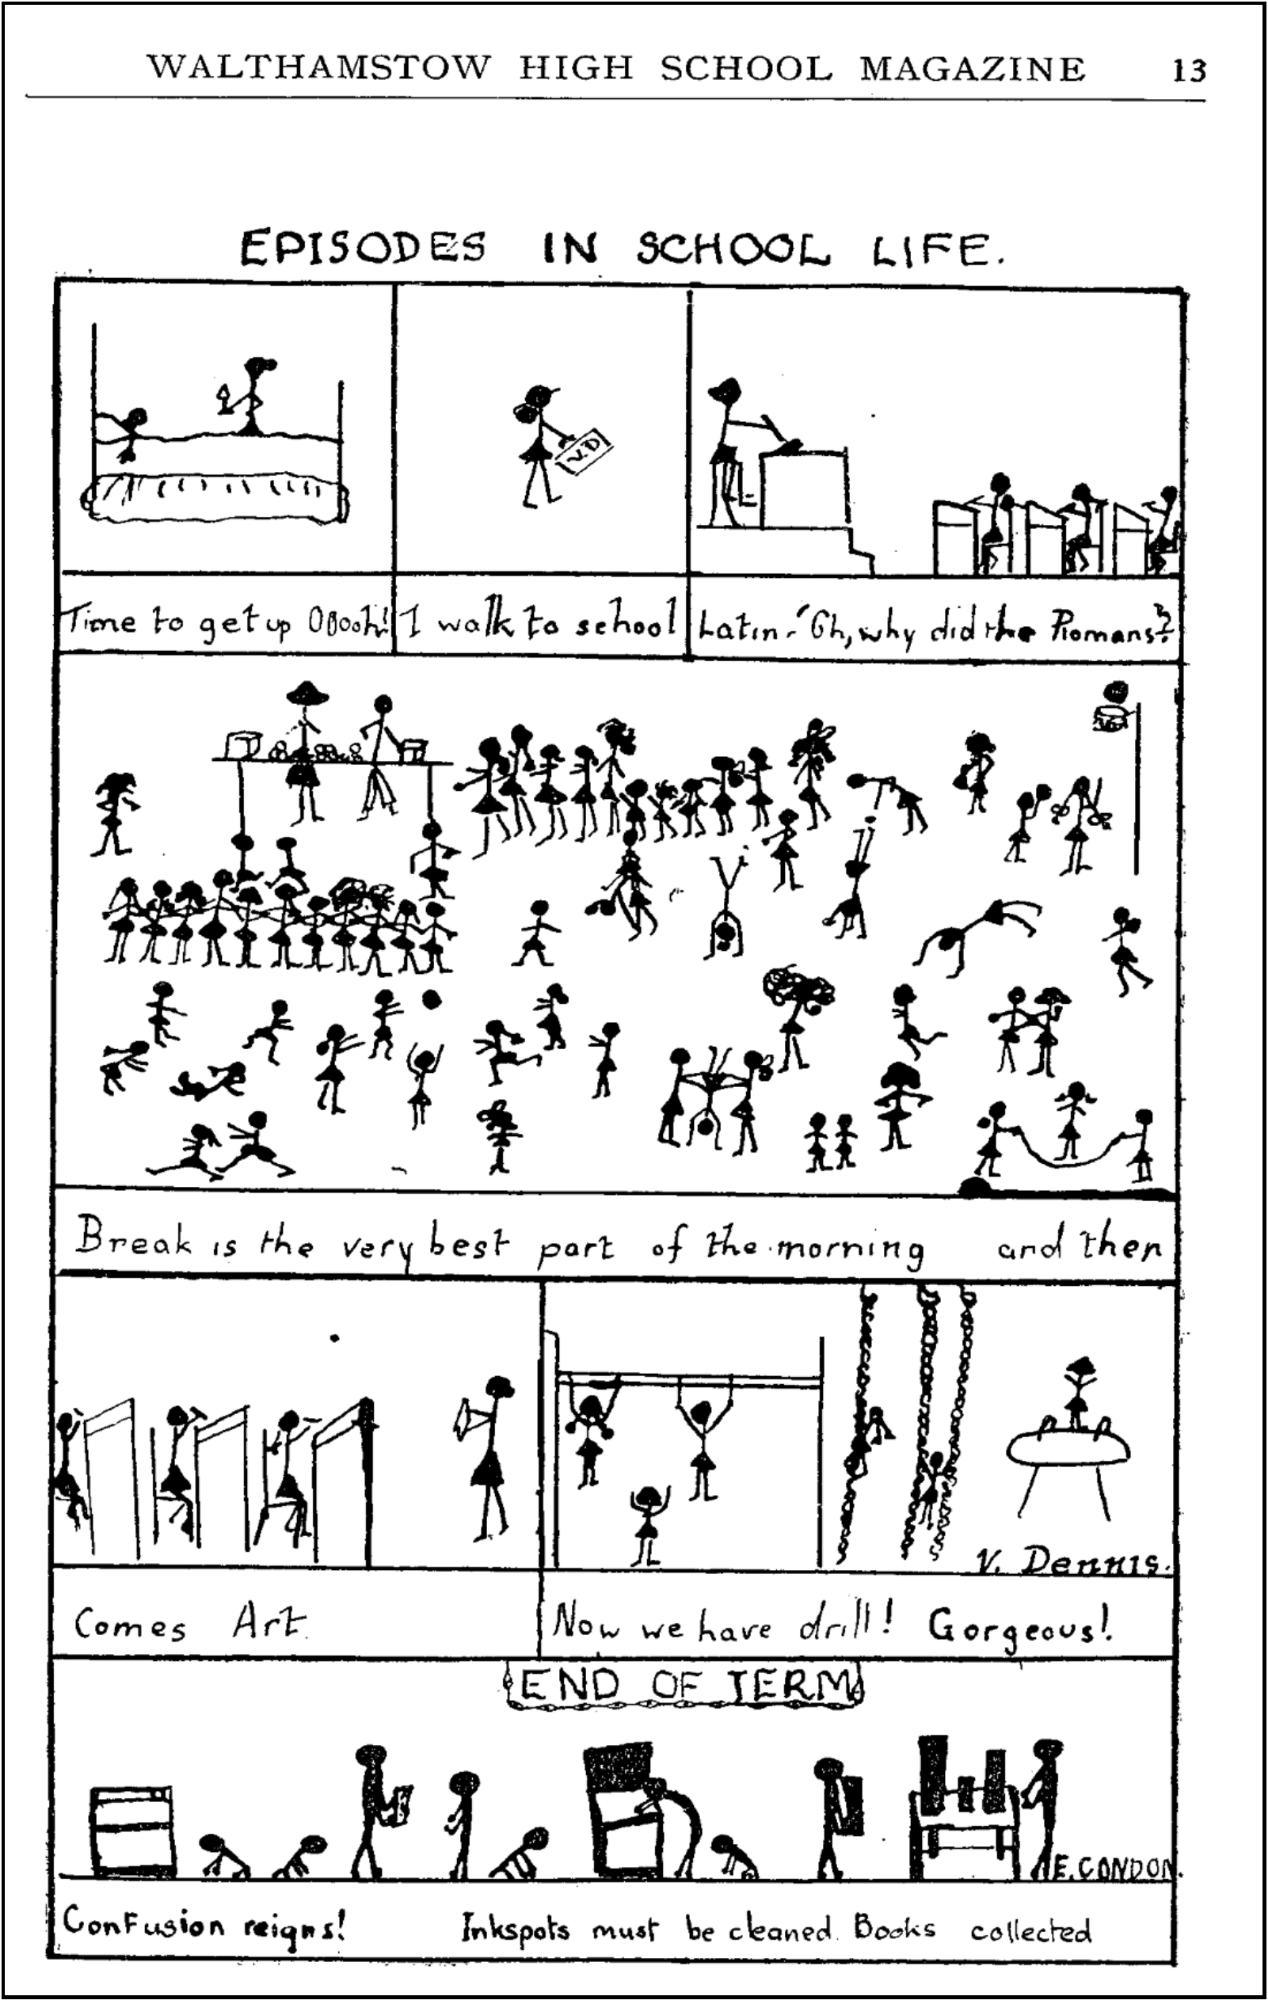 WALTHAMSTOW HIGH SCHOOL MAGAZINE 13
EPISODES IN SCHOOL LIFE.
V.D
Time to get up Ooooh!
I walk to school
Latin - "Oh, why did the Romans?
Break is the very best part of the morning and then
V. Dennis.
Comes Art.
Now we have drill! Gorgeous!
END OF TERM
E. CONDON.
Confusion reigns! Inkspots must be cleaned. Books collected